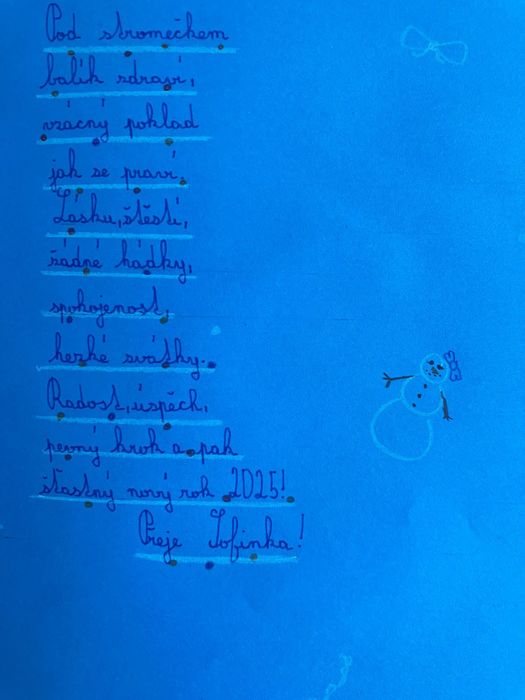 Pod stromečkem
balík zdraví,
vzácný poklad
jak se praví.
Lásku, štěstí,
žádné hádky,
spokojenost,
hezké svátky.
Radost, úspěch,
pevný krok a pak
šťastný nový rok 2025!
Přeje Žofinka!